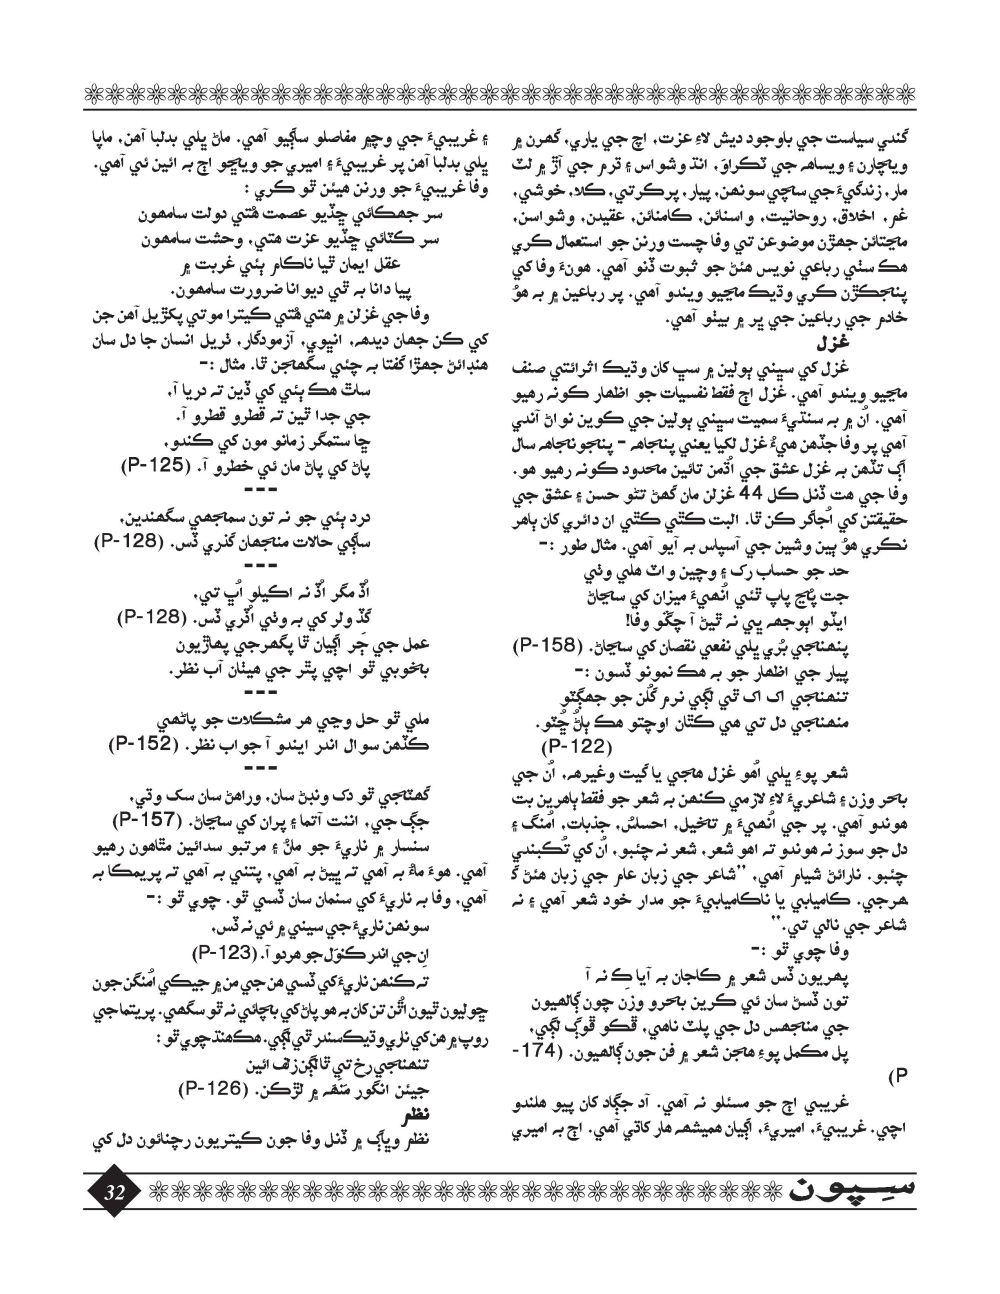 گندي سياست جي باوجود ديش لاءِ عزت، اچ جي ياري، گهرن ۾
ويڃارن ۽ ويساهه جي ٽڪراوَ، انڌ وشواس ۽ ڌرم جي آڙ ۾ لٽ
مار، زندگيءَ جي سچي سونهن، پيار، پرڪرتي، ڪلا، خوشي،
غم، اخلاق، روحانيت، واسنائن، ڪامنائن، عقيدن، وشواسن،
مڃتائن جهڙن موضوعن تي وفا چست ورنن جو استعمال ڪري
هڪ سٺي رباعي نويس هئڻ جو ثبوت ڏنو آهي. هونءَ وفا کي
پنجڪڙن ڪري وڌيڪ مڃيو ويندو آهي. پر رباعين ۾ به هوُ
خادم جي رباعين جي ڀر ۾ بيٺو آهي.
غزل
غزل کي سڀني ٻولين ۾ سڀ کان وڌيڪ اثرائتي صنف
مڃيو ويندو آهي. غزل اڄ فقط نفسيات جو اظهار ڪونه رهيو
آهي. اُن ۾ به سنڌيءَ سميت سڀني ٻولين جي ڪوين نواڻ آندي
آهي پر وفا جڏهن هيءُ غزل لکيا يعني پنجاهه - پنجونجاهه سال
اڳ تڏهن به غزل عشق جي اڱڻ تائين محدود ڪونه رهيو هو.
وفا جي هٿ ڏنل ڪل 44 غزلن مان گهڻ تڻو حسن ۽ عشق جي
حقيقتن کي اُجاگر ڪن ٿا. البت ڪٿي ڪٿي ان دائري کان ٻاهر
نڪري هوُ ٻين وشين جي آسپاس به آيو آهي. مثال طور :-
حد جو حساب رک ۽ وچين واٽ هلي وٺي
جت پُڃ پاپ ٿئي اُنهيءَ ميزان کي سڃاڻ
ايڏو اٻوجهه ڀي نه ٿيڻ آ چڱو وفا!
پنهنجي بُري ڀلي نفعي نقصان کي سڃاڻ. (P-158)
پيار جي اظهار جو به هڪ نمونو ڏسون :-
تنهنجي اک اک ٿي لڳي نرم گُلن جو جهڳٽو
منهنجي دل تي هي ڪٿان اوچتو هڪ ٻاڻُ ڇُٽو.
(P-122)
شعر پوءِ ڀلي اُهو غزل هجي يا گيت وغيره، اُن جي
بحر وزن ۽ شاعريءَ لاءِ لازمي ڪنهن به شعر جو فقط ٻاهرين بت
هوندو آهي. پر جي اُنهيءَ ۾ تخيل، احساسُ، جذبات، اُمنگ ۽
دل جو سوز نه هوندو ته اهو شعر، شعر نه چئبو، اُن کي تُڪبندي
چئبو. نارائڻ شيام آهي، "شاعر جي زبان عام جي زبان هئڻ گ
هرجي. ڪاميابي يا ناڪاميابيءَ جو مدار خود شعر آهي ۽ نه
شاعر جي نالي تي."
وفا چوي ٿو :-
پهريون ڏس شعر ۾ ڪاجان به آيا ڪِ نه آ
تون ڏسڻ سان ئي ڪرين بحرو وزن چون ڳالهيون
جي منجهس دل جي پلٽ ناهي، ڦڪو ڦوڳ لڳي،
پل مڪمل پوءِ هجن شعر ۾ فن جون ڳالهيون. (174-
P)
غريبي اڄ جو مسئلو نه آهي. آد جڳاد کان پيو هلندو
اچي. غريبيءَ، اميريءَ، اڳيان هميشهه هار کاڌي آهي. اڄ به اميري
۽ غريبيءَ جي وچ ۾ مفاصلو ساڳيو آهي. ماڻ ڀلي بدليا آهن، ماپا
ڀلي بدليا آهن پر غريبيءَ ۽ اميري جو ويڇو اڄ به ائين ئي آهي.
وفا غريبيءَ جو ورنن هيئن ٿو ڪري :
سر جهڪائي ڇڏيو عصمت هُتي دولت سامهون
سر ڪٽائي ڇڏيو عزت هتي، وحشت سامهون
عقل ايمان ٿيا ناڪام ٻئي غربت ۾
پيا دانا به ٿي ديوانا ضرورت سامهون.
وفا جي غزلن ۾ هتي هُتي ڪيترا موتي پکڙيل آهن جن
کي ڪن جهان ديدهه، انڀوي، آزمودگار، ٿريل انسان جا دل سان
هنڊائڻ جهڙا گفتا به چئي سگهجن ٿا. مثال :-
ساٿ هڪ ٻئي کي ڏين ته دريا آ،
جي جدا ٿين ته قطرو قطرو آ.
ڇا ستمگر زمانو مون کي ڪندو،
پاڻ کي پاڻ مان ئي خطرو آ. (P-125)
---
درد ٻئي جو نه تون سمجهي سگهندين،
ساڳي حالات منجهان گذري ڏس. (P-128)
---
اُڏ مگر اُڏ نه اڪيلو اُڀ تي،
گڏ ولر کي به وٺي اُڏري ڏس. (P-128)
عمل جي چر اڳيان ٿا پگهرجي پهاڙيون
بخوبي ٿو اچي پٿر جي هيٺان آب نظر.
---
ملي ٿو حل وڃي هر مشڪلات جو پاڻهي
ڪڏهن سوال اندر ايندو آ جواب نظر. (P-152)
---
گهٽجي ٿو دک ونڊڻ سان، وراهڻ سان سک وڌي،
جڳ جي، اننت آتما ۽ پران کي سڃاڻ. (P-157)
سنسار ۾ ناريءَ جو مانُ ۽ مرتبو سدائين مٿاهون رهيو
آهي. هوءَ ماءُ به آهي ته ڀيڻ به آهي، پتني به آهي ته پريمڪا به
آهي، وفا به ناريءَ کي سنمان سان ڏسي ٿو. چوي ٿو :-
سونهن ناريءَ جي سيني ۾ ئي نه ڏس،
اِن جي اندر ڪنوَل جو هردو آ. (P-123)
ته ڪنهن ناريءَ کي ڏسي هن جي من ۾ جيڪي اُمنگن جون
ڇوليون ٿيون اٿن تن کان به هو پاڻ کي بچائي نه ٿو سگهي. پريتما جي
روپ ۾ هن کي ناري وڌيڪ سندر ٿي لڳي. هڪ هنڌ چوي ٿو :
تنهنجي رخ تي ٿا لڳن زلف ائين
جيئن انگور مَنهه ۾ لڙڪن. (P-126)
نظم
نظم وڀاڳ ۾ ڏنل وفا جون ڪيتريون رچنائون دل کي
سِپون
32